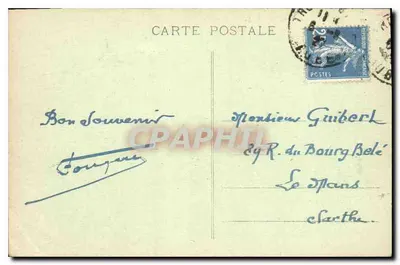 CARTE POSTALE
POSTES
Bon Souvenir
Monsieur Guibert
29 R. du Bourg Belé
Le Mans
Sarthe
CPARAMA